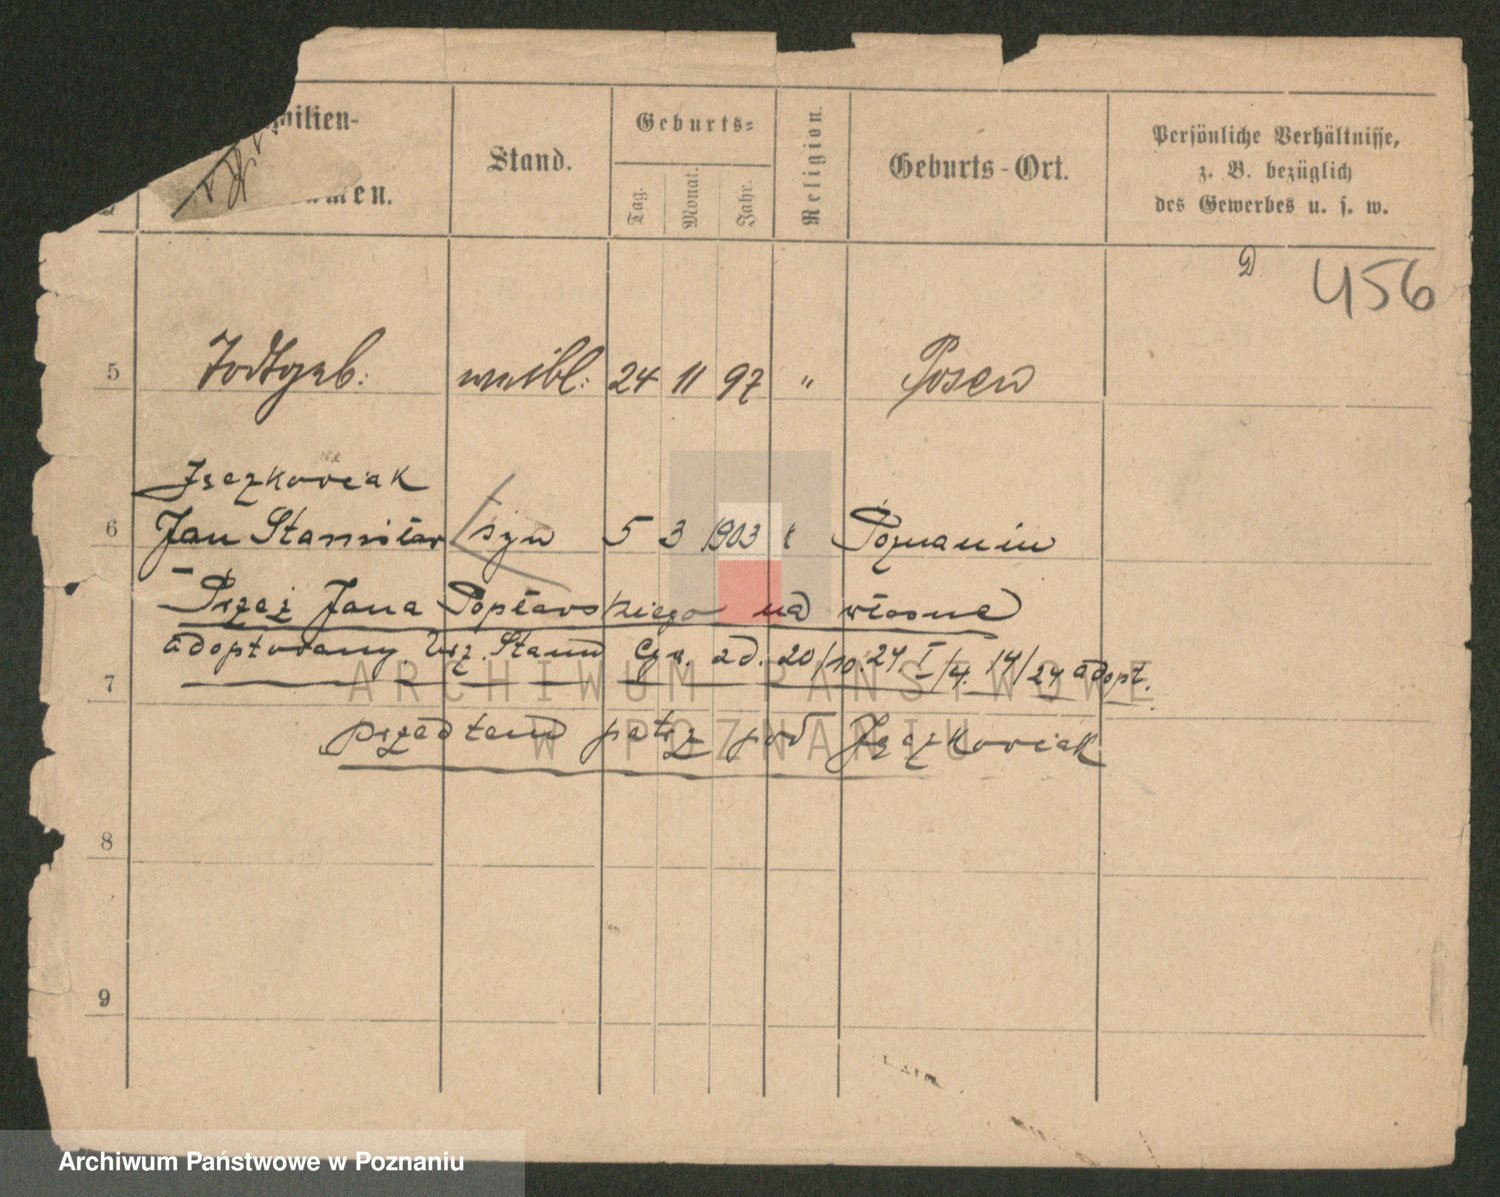 Geburts-
Persönliche Verhältnisse,
Stand.
Religion.
Geburts-Ort.
z. B. bezüglich
Tag.
Monat.
Jahr.
des Gewerbes u. s. w.
D
456
5 Todtgeb: weibl: 24 11 97 " Posen
Jęczkowiak
6 Jan Stanisław syn 5 3 1903 k Poznaniu
Przez Jana Popławskiego na własne
adoptowany. Urz. Stanu Cyw. ad. 20/10.24 I/4. 14/24 adopt.
7
przedtem patrz pod Jęczkowiak
8
9
ARCHIWUM PAŃSTWOWE
W POZNANIU
Archiwum Państwowe w Poznaniu